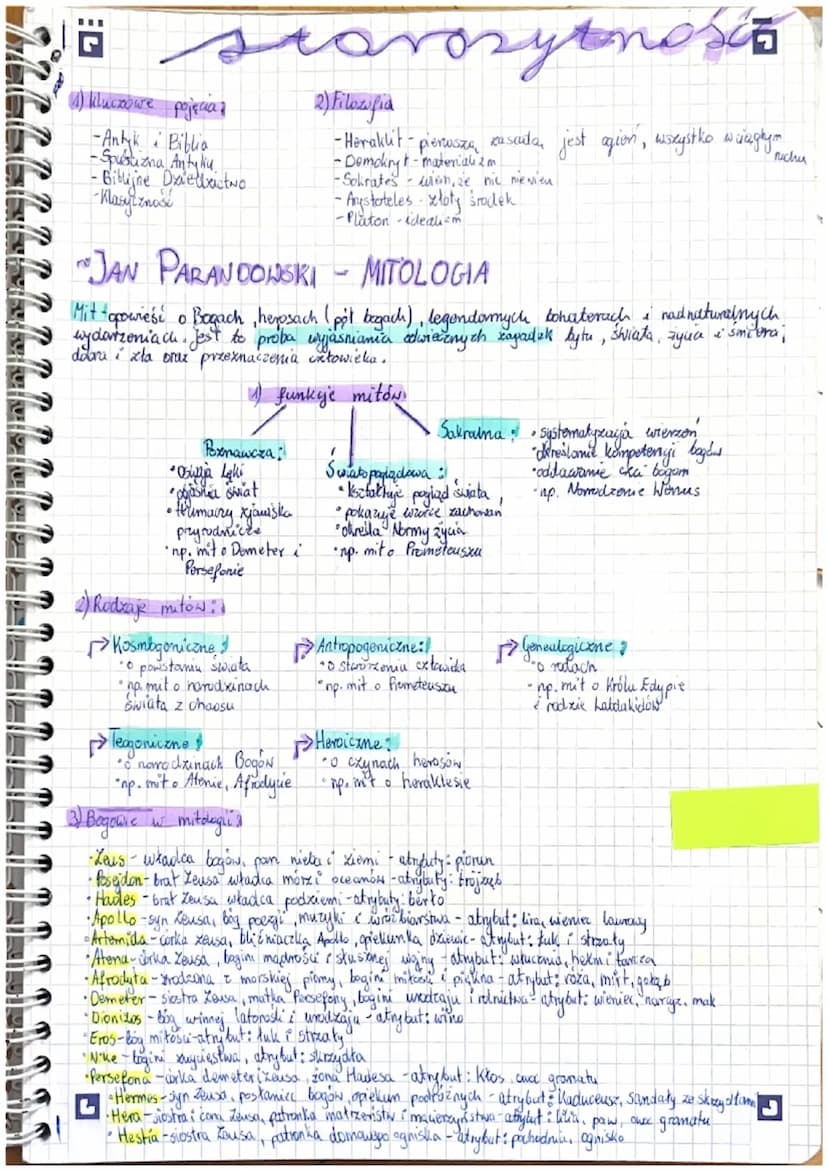 starożytność
1) Kluczowe pojęcia:
-Antyk i Biblia
-Spuścizna Antyku
-Biblijne Dziedzictwo
-Klasyczność
2) Filozofia
-Heraklit - pierwszą zasadą jest ogień, wszystko w ciągłym ruchu
-Demokryt - materializm
-Sokrates - wiem, że nic nie wiem
-Arystoteles - złoty środek
-Platon - idealizm
JAN PARANDOWSKI - MITOLOGIA
Mit - opowieść o Bogach, herosach (pół bogach), legendarnych bohaterach i nadnaturalnych
wydarzeniach. Jest to próba wyjaśniania odwiecznych zagadek bytu, świata, życia i śmierci,
dobra i zła oraz przeznaczenia człowieka.
1) funkcje mitów
Poznawcza:
• Oswaja lęki
• objaśnia świat
• tłumaczy zjawiska
przyrodnicze
• np. mit o Demeter i
Persefonie
Światopoglądowa:
• kształtuje pogląd świata,
• pokazuje wzorce zachowań
• określa Normy życia
• np. mit o Prometeuszu
Sakralna:
• systematyzacja wierzeń
• określanie kompetencji bogów
• oddawanie czci bogom
• np. Narodzenie Wenus
2) Rodzaje mitów:
Kosmogoniczne:
• o powstaniu świata
• np. mit o narodzinach
świata z chaosu
Antropogeniczne:
• o stworzeniu człowieka
• np. mit o Prometeuszu
Genealogiczne:
• o rodach
- np. mit o Królu Edypie
i rodzie Labdakidów
Teogoniczne:
• o narodzinach Bogów
• np. mit o Atenie, Afrodycie
Heroiczne:
• o czynach herosów
• np. mit o heraklesie
3) Bogowie w mitologii:
• Zeus - władca bogów, pan nieba i ziemi - atrybuty: piorun
• Posejdon - brat Zeusa władca mórz i oceanów - atrybuty: trójząb
• Hades - brat Zeusa władca podziemi - atrybuty: berło
• Apollo - syn Zeusa, bóg poezji, muzyki i wróżbiarstwa - atrybut: lira, wieniec laurowy
• Artemida - córka zeusa, bliźniaczka Apollo, opiekunka dziewic - atrybut: łuk i strzały
• Atena - córka Zeusa, bogini mądrości i słusznej wojny - atrybut: włócznia, hełm i tarcza
• Afrodyta - zrodzona z morskiej piany, bogini miłości i piękna - atrybut: róża, mirt, gołąb
• Demeter - siostra Zeusa, matka Persefony, bogini urodzaju i rolnictwa - atrybut: wieniec, narcyz, mak
• Dionizos - bóg winnej latorośli i urodzaju - atrybut: wino
• Eros - bóg miłości - atrybut: łuk i strzały
• Nike - bogini zwycięstwa, atrybut: skrzydła
• Persefona - córka demeter i zeusa, żona Hadesa - atrybut: kłos, owoc granatu
• Hermes - syn Zeusa, posłaniec bogów, opiekun podróżnych - atrybut: kaduceusz, sandały ze skrzydłami
• Hera - siostra i żona Zeusa, patronka małżeństw i macierzyństwa - atrybut: lilia, paw, owoc granatu
• Hestia - siostra Zeusa, patronka domowego ogniska - atrybut: pochodnia, ognisko